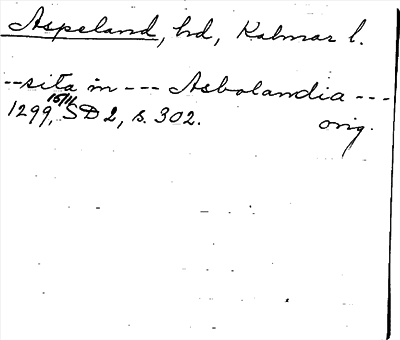 Aspeland, hd, Kalmar l.
--sita in --- Asbolandia ---
1299, 15/11 SD 2, s. 302. orig.